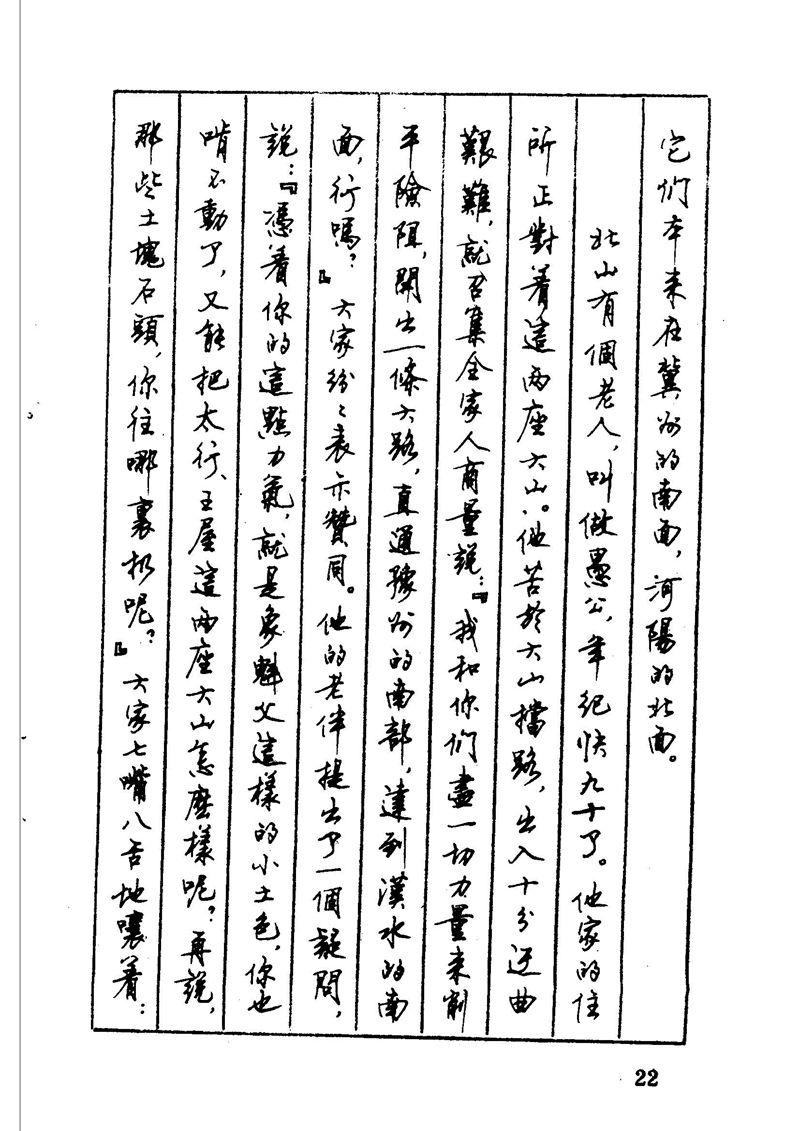 它们本来在冀州的南面，河陽的北面。
北山有個老人，叫做愚公，年纪快九十了。他家的住
所正對着這两座大山。他苦於大山擋路，出入十分迂曲
艱難，就召集全家人商量説：『我和你们盡一切力量来削
平險阻，開出一條大路，直通豫州的南部，達到漢水的南
面，行嗎？』大家紛々表示贊同。他的老伴提出了一個疑問，
説：『憑着你的這點力氣，就是象魁父這樣的小土包，你也
啃不動了，又能把太行、王屋這两座大山怎麽樣呢？再説，
那些土塊石頭，你往哪裏扔呢？』大家七嘴八舌地嚷着：
22